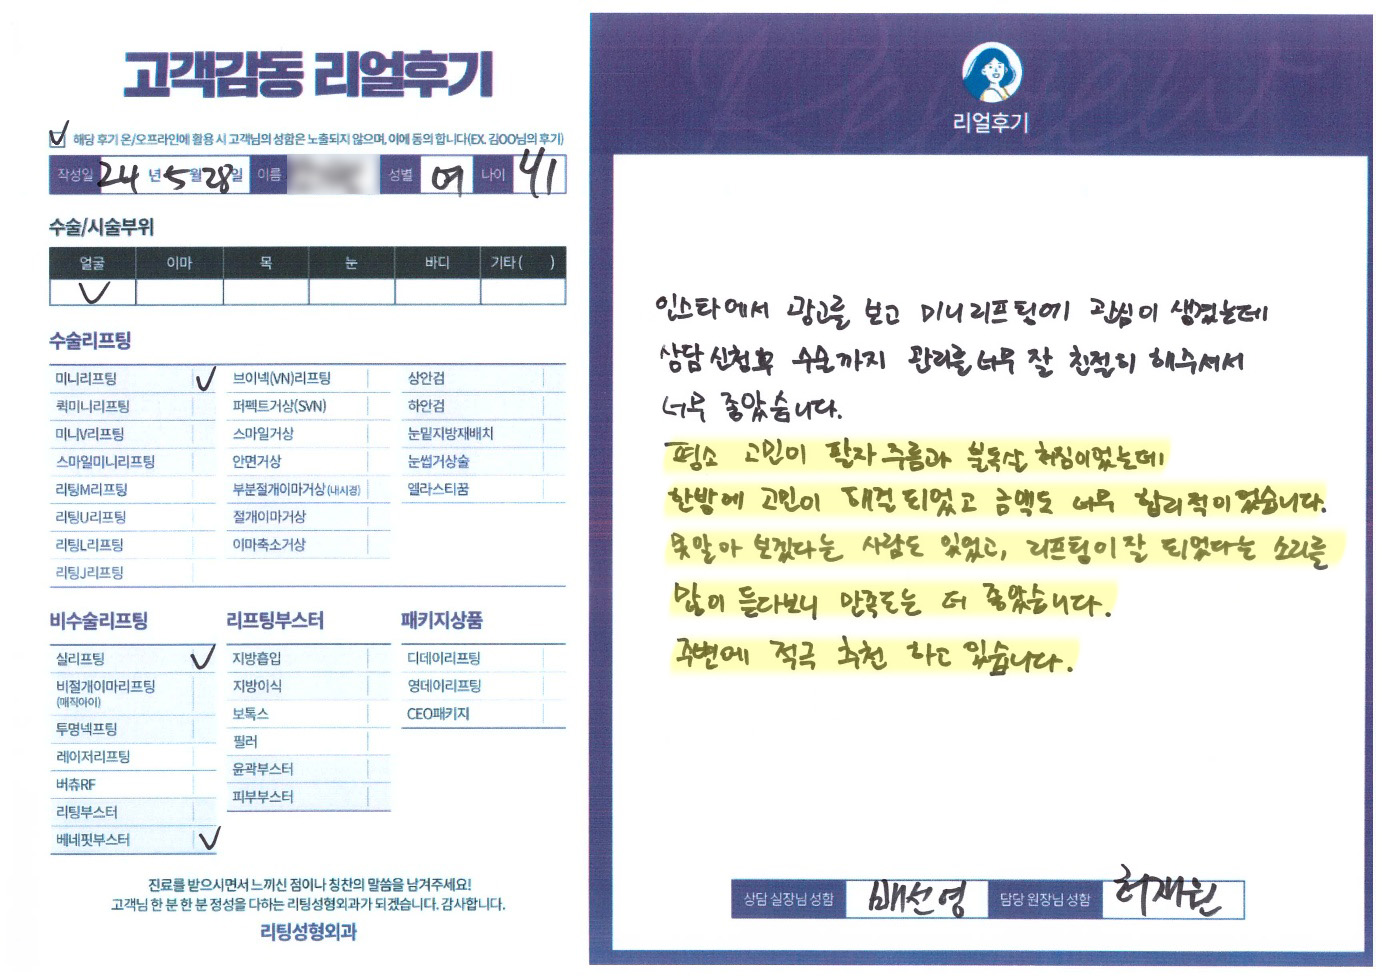 고객감동 리얼후기
해당 후기 온/오프라인에 활용 시 고객님의 성함은 노출되지 않으며, 이에 동의 합니다(EX. 김OO님의 후기)
작성일 24년 5월 28일 이름 성별 여 나이 41
수술/시술부위
얼굴 이마 목 눈 바디 기타 ( )
수술리프팅
미니리프팅 브이넥(VN)리프팅 상안검
퀵미니리프팅 퍼펙트거상(SVN) 하안검
미니V리프팅 스마일거상 눈밑지방재배치
스마일미니리프팅 안면거상 눈썹거상술
리팅M리프팅 부분절개이마거상 (내시경) 엘라스티꿈
리팅U리프팅 절개이마거상
리팅L리프팅 이마축소거상
리팅J리프팅
비수술리프팅 리프팅부스터 패키지상품
실리프팅 지방흡입 디데이리프팅
비절개이마리프팅 지방이식 영데이리프팅
(매직아이)
투명넥프팅 보톡스 CEO패키지
레이저리프팅 필러
버츄RF 윤곽부스터
리팅부스터 피부부스터
베네핏부스터
진료를 받으시면서 느끼신 점이나 칭찬의 말씀을 남겨주세요!
고객님 한 분 한 분 정성을 다하는 리팅성형외과가 되겠습니다. 감사합니다.
리팅성형외과
Review
리얼후기
인스타에서 광고를 보고 미니리프팅에 관심이 생겼는데
상담 신청 수술까지 관리를 너무 잘 친절히 해주셔서
너무 좋았습니다.
평소 고민이 팔자 주름과 불독살 처짐이었는데
한방에 고민이 해결 되었고 금액도 너무 합리적이었습니다.
못알아 보겠다는 사람도 있었고, 리프팅이 잘 되었다는 소리를
많이 듣다보니 만족도는 더 좋았습니다.
주변에 적극 추천 하고 있습니다.
상담 실장님 성함 배선영 담당 원장님 성함 허재원